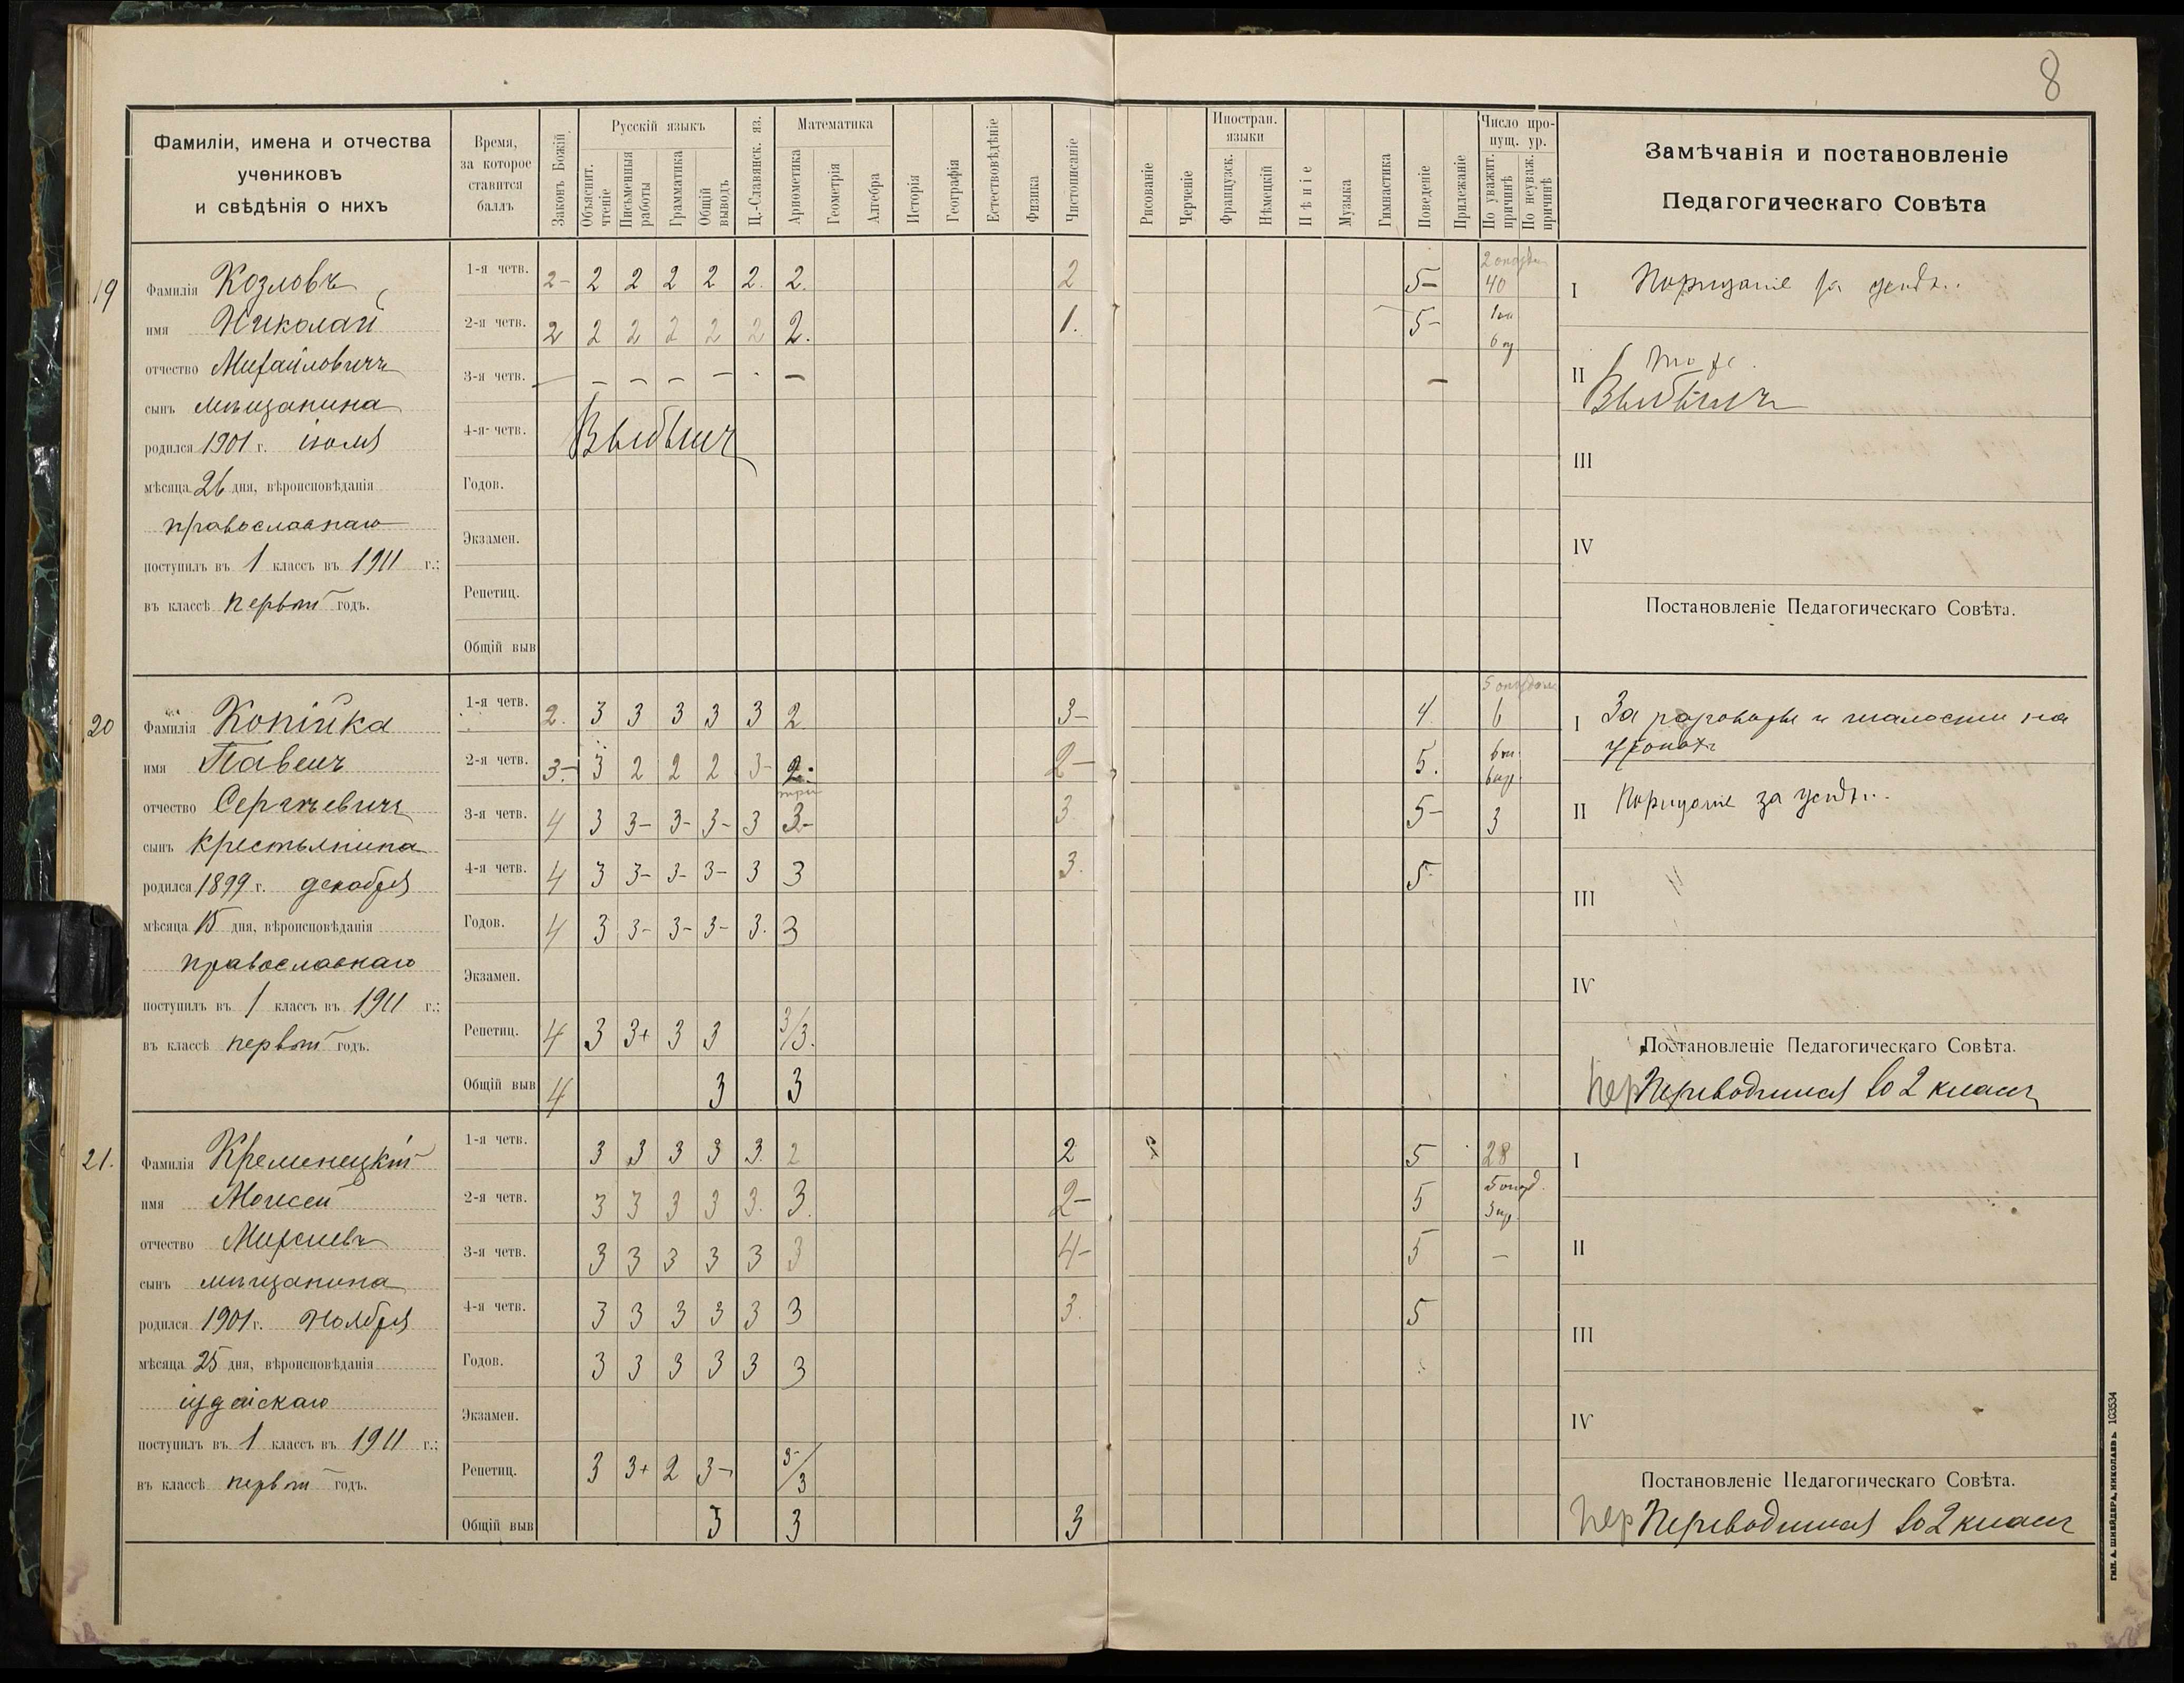 8
Фамиліи, имена и отчества
учениковъ
и свѣдѣнія о нихъ
Время,
за которое
ставится
баллъ
Законъ Божій
Русскій языкъ
Объяснит. чтеніе
Письменныя работы
Грамматика
Общій выводъ
Ц.-Славянск. яз.
Математика
Ариѳметика
Геометрія
Алгебра
Исторія
Географія
Естествовѣдѣніе
Физика
Чистописаніе
Рисованіе
Черченіе
Иностран. языки
Французск.
Нѣмецкій
Пѣніе
Музыка
Гимнастика
Поведеніе
Прилежаніе
Число пропущ. ур.
По уважит. причинѣ
По неуваж. причинѣ
Замѣчанія и постановленіе
Педагогическаго Совѣта
19
Фамилія Козловъ
имя Николай
отчество Михайловичъ
сынъ мѣщанина
родился 1901 г. іюля
мѣсяца 26 дня, вѣроисповѣданія
православнаго
поступилъ въ 1 классъ въ 1911 г.;
въ классѣ первый годъ.
1-я четв. 2- 2 2 2 2 2. 2. 2 5- 40
2-я четв. 2 2 2 2 2 2 2. 1. 5-
3-я четв. — — — — — - — —
4-я четв. Выбылъ
Годов.
Экзамен.
Репетиц.
Общій выв
I Порицаніе за успѣх..
II То же.
Выбылъ
III
IV
Постановленіе Педагогическаго Совѣта.
20
Фамилія Копійка
имя Павелъ
отчество Сергѣевичъ
сынъ крестьянина
родился 1899 г. декабря
мѣсяца 15 дня, вѣроисповѣданія
православнаго
поступилъ въ 1 классъ въ 1911 г.;
въ классѣ первый годъ.
1-я четв. 2. 3 3 3 3 3 2 3- 4 6
2-я четв. 3- 3 2 2 2 3- 2. 2- 5.
3-я четв. 4 3 3- 3- 3- 3 3- 3 5- 3
4-я четв. 4 3 3- 3- 3- 3 3 3. 5
Годов. 4 3 3- 3- 3- 3. 3
Экзамен.
Репетиц. 4 3 3+ 3 3 3/3.
Общій выв 4 3 3
I За разговоры и шалости на
урокахъ
II Порицаніе за успѣх...
III
IV
Постановленіе Педагогическаго Совѣта.
пер Переводится во 2 классъ
21.
Фамилія Кременецкій
имя Моисей
отчество
сынъ мѣщанина
родился 1901 г. Ноября
мѣсяца 25 дня, вѣроисповѣданія
іудейскаго
поступилъ въ 1 классъ въ 1911 г.;
въ классѣ первый годъ.
1-я четв. 3 3 3 3 3. 2 2 5 28
2-я четв. 3 3 3 3 3. 3. 2- 5
3-я четв. 3 3 3 3 3 3 4- 5 —
4-я четв. 3 3 3 3 3 3 3. 5
Годов. 3 3 3 3 3 3
Экзамен.
Репетиц. 3 3+ 2 3- 3-/3
Общій выв 3 3 3
I
II
III
IV
Постановленіе Педагогическаго Совѣта.
пер Переводится во 2 классъ
тип. А. Шнейдера, Николаевъ. 103534